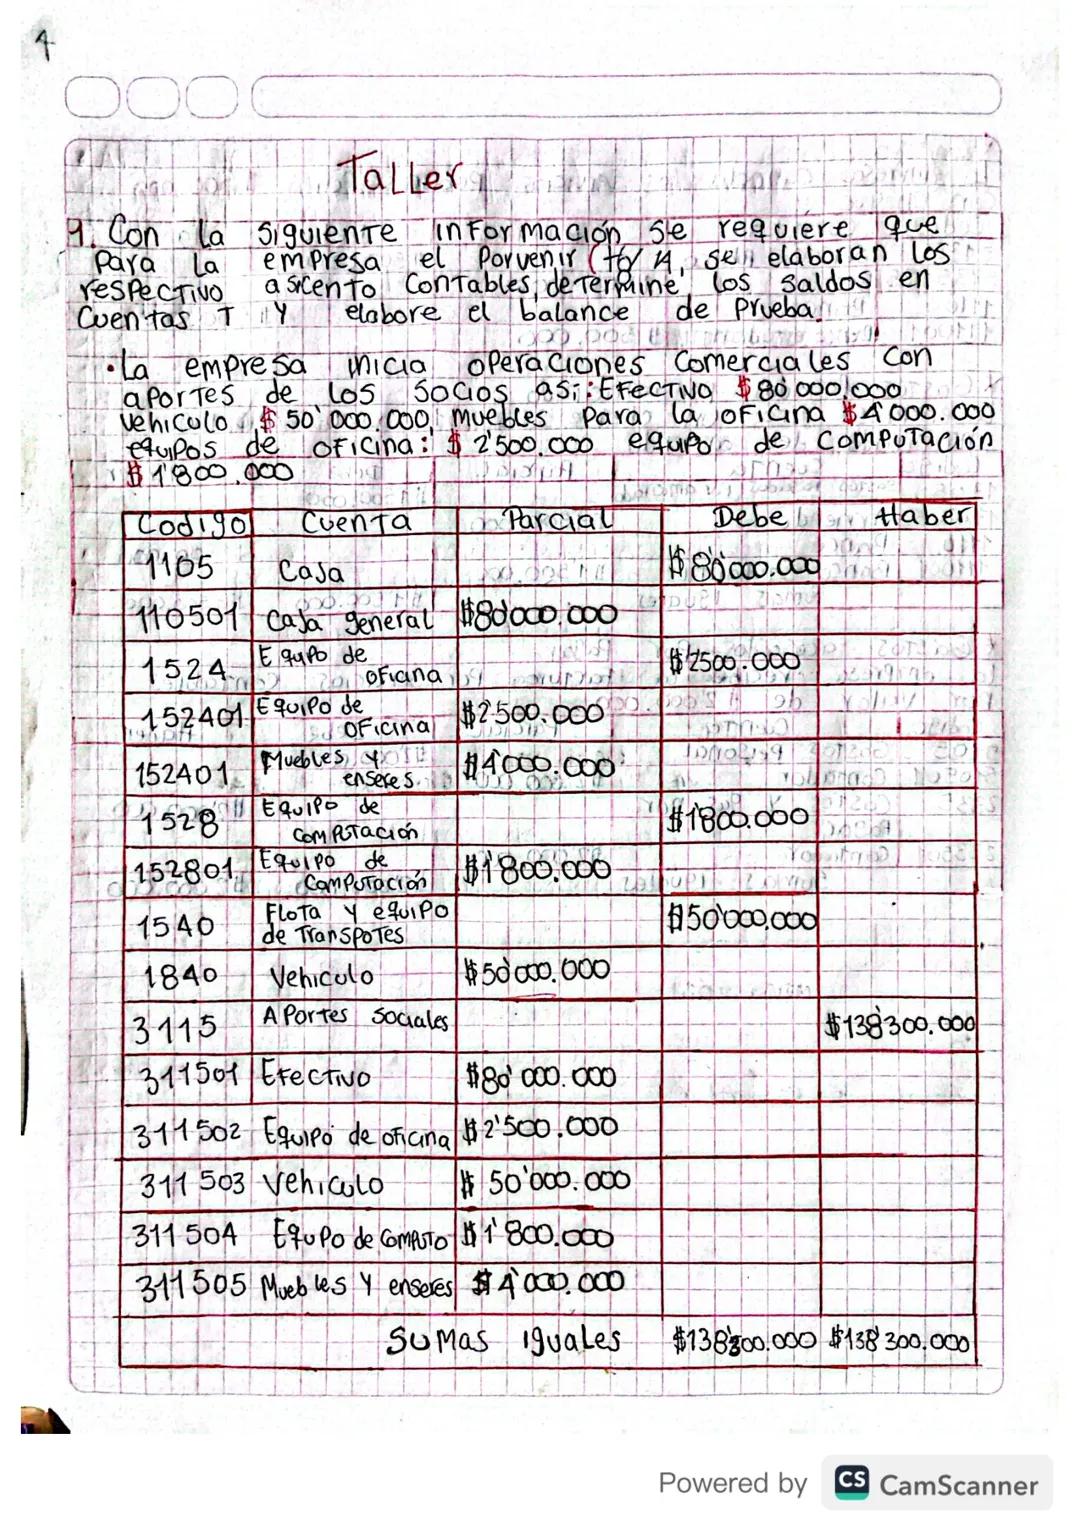 4
Taller
1. Con la siguiente información se requiere que
para la empresa el Porvenir se elaboran los
respectivo asicento contables, determine los saldos en
Cuentas T y elabore el balance de Prueba.
• La empresa inicia operaciones Comerciales con
aportes de los socios así: Efectivo $80'000.000
vehiculo $50'000.000 muebles para la oficina $4'000.000
equipos de oficina: $2'500.000 equipo de computación
$1'800.000
Codigo Cuenta Parcial Debe Haber
1105 Caja $80'000.000
110501 Caja general $80'000.000
1524 Equipo de oficina $2'500.000
152401 Equipo de oficina $2'500.000
152401 Muebles y enseres $4'000.000
1528 Equipo de computación $1'800.000
152801 Equipo de computación $1'800.000
1540 Flota y equipo de Transpotes $50'000.000
1840 Vehiculo $50'000.000
3115 Aportes sociales $138'300.000
311501 Efectivo $80'000.000
311502 Equipo de oficina $2'500.000
311503 Vehiculo $50'000.000
311504 Equipo de computo $1'800.000
311505 Muebles y enseres $4'000.000
Sumas iguales $138'300.000 $138'300.000
Powered by CS CamScanner